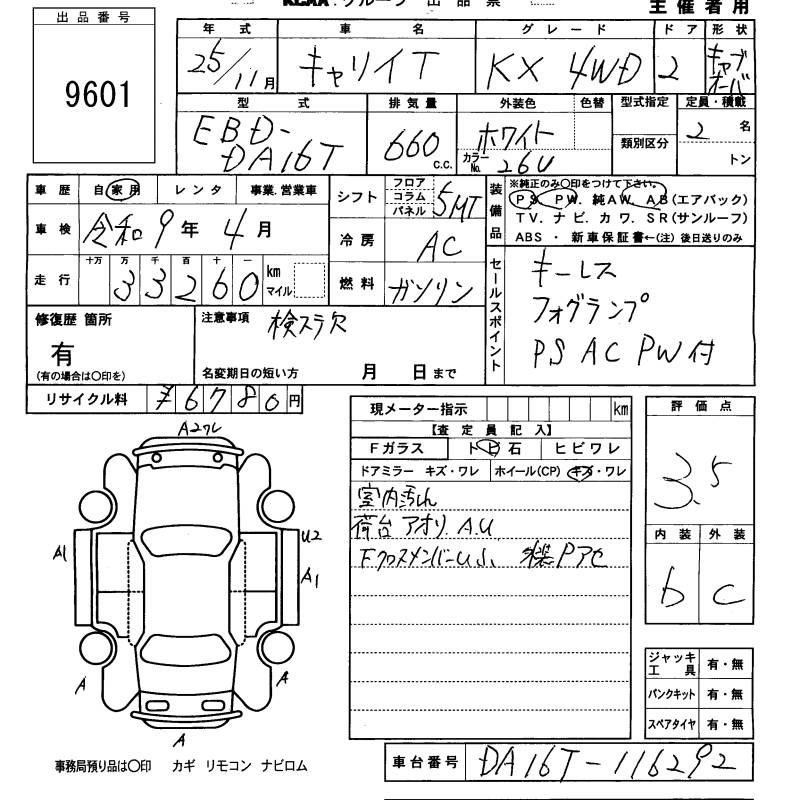 KCAA グループ 出品票
主催者用
出品番号
9601
年式 車名 グレード ドア 形状
25/11月 キャリイT KX 4WD 2 キャブオーバ
型式 排気量 外装色 色替 型式指定 定員・積載
EBD-DA16T 660c.c. ホワイト カラーNo. 26U 類別区分 2名 トン
車歴 自家用 レンタ 事業.営業車
車検 令和9年4月
走行 十万 万 千 百 十 一
33260 km マイル
シフト フロア コラム パネル 5MT
冷房 AC
燃料 ガソリン
装備品
※純正のみ〇印をつけて下さい。
PS. PW. 純AW. AB(エアバック)
TV. ナビ. カワ. SR(サンルーフ)
ABS ・ 新車保証書←(注) 後日送りのみ
セールスポイント
キーレス
フォグランプ
PS AC PW付
修復歴 箇所
有
(有の場合は〇印を)
注意事項 検ステ欠
名変期日の短い方 月 日まで
リサイクル料 ¥6780円
現メーター指示 km
【査定員記入】
Fガラス トビ石 ヒビワレ
ドアミラー キズ・ワレ ホイール(CP) キズ・ワレ
室内汚れ
荷台アオリ A.U
FクロスメンバーU小 Pアセ
評価点
3.5
内装 外装
b C
A2ワレ
A1
U2
A1
A
A
A
ジャッキ工具 有・無
パンクキット 有・無
スペアタイヤ 有・無
事務局預り品は〇印 カギ リモコン ナビロム
車台番号 DA16T-116292